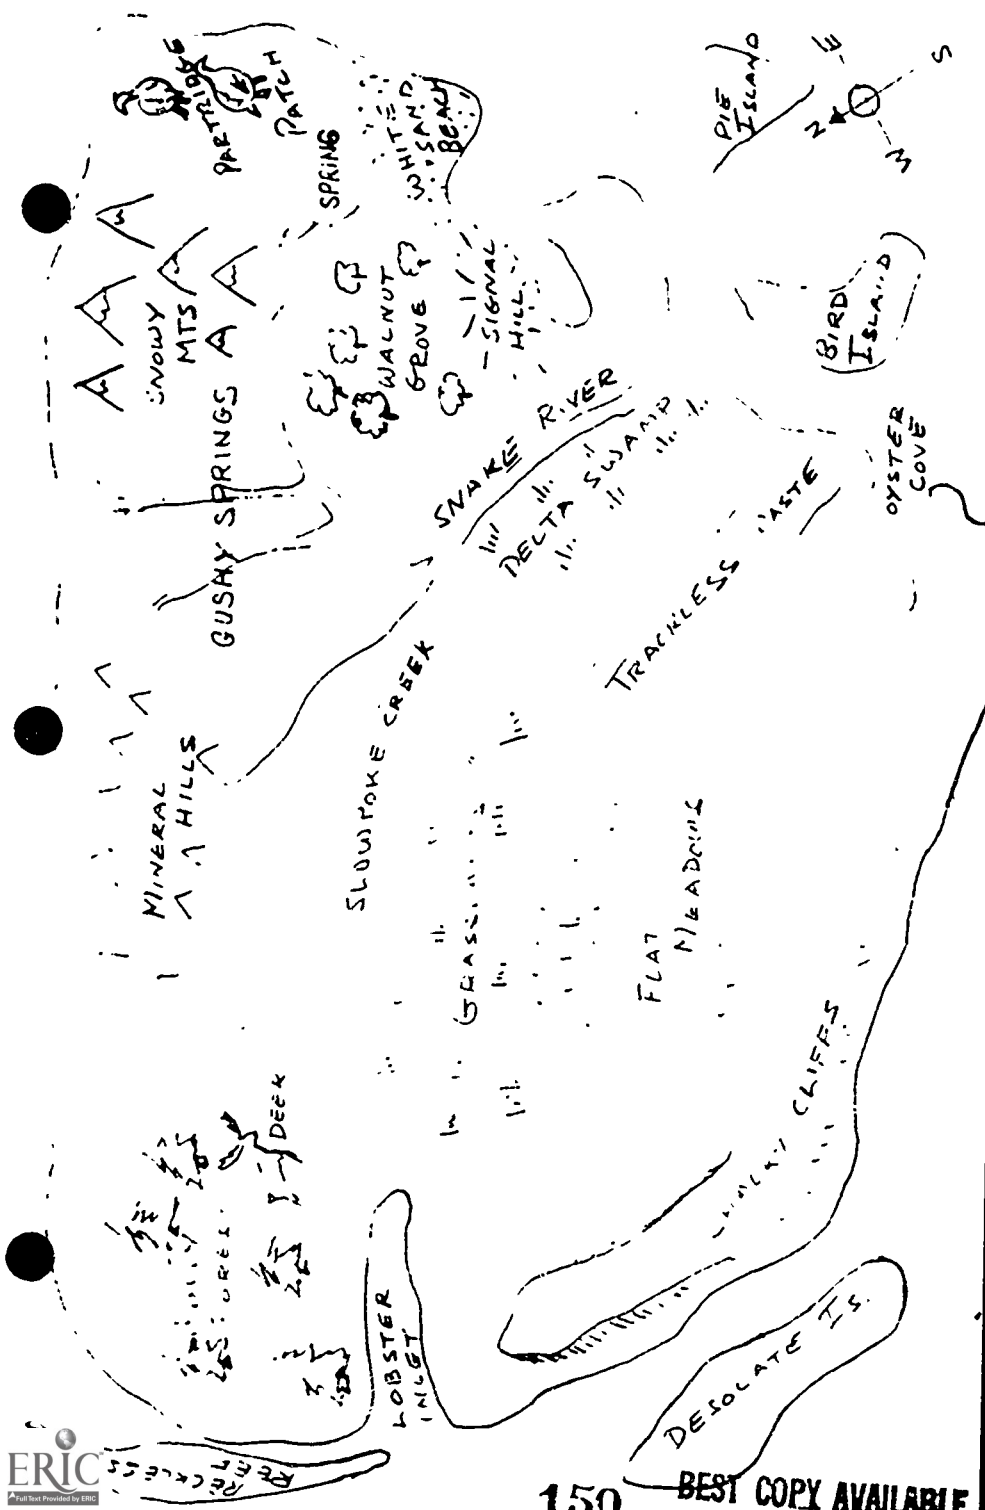 PARTRIDGE
PATCH
SPRING
WHITE
SAND
BEACH
PIE
ISLAND
N
E
S
W
SNOWY
MTS
GUSHY SPRINGS
WALNUT
GROVE
SIGNAL
HILL
BIRD
ISLAND
SNAKE RIVER
DELTA SWAMP
OYSTER
COVE
TRACKLESS
MINERAL
HILLS
SLOWPOKE CREEK
FLAT
MEADOWS
DEER
CLIFFS
LOBSTER
INLET
DESOLATE IS.
RECKLESS
REEF
ERIC
Full Text Provided by ERIC
150
BEST COPY AVAILABLE